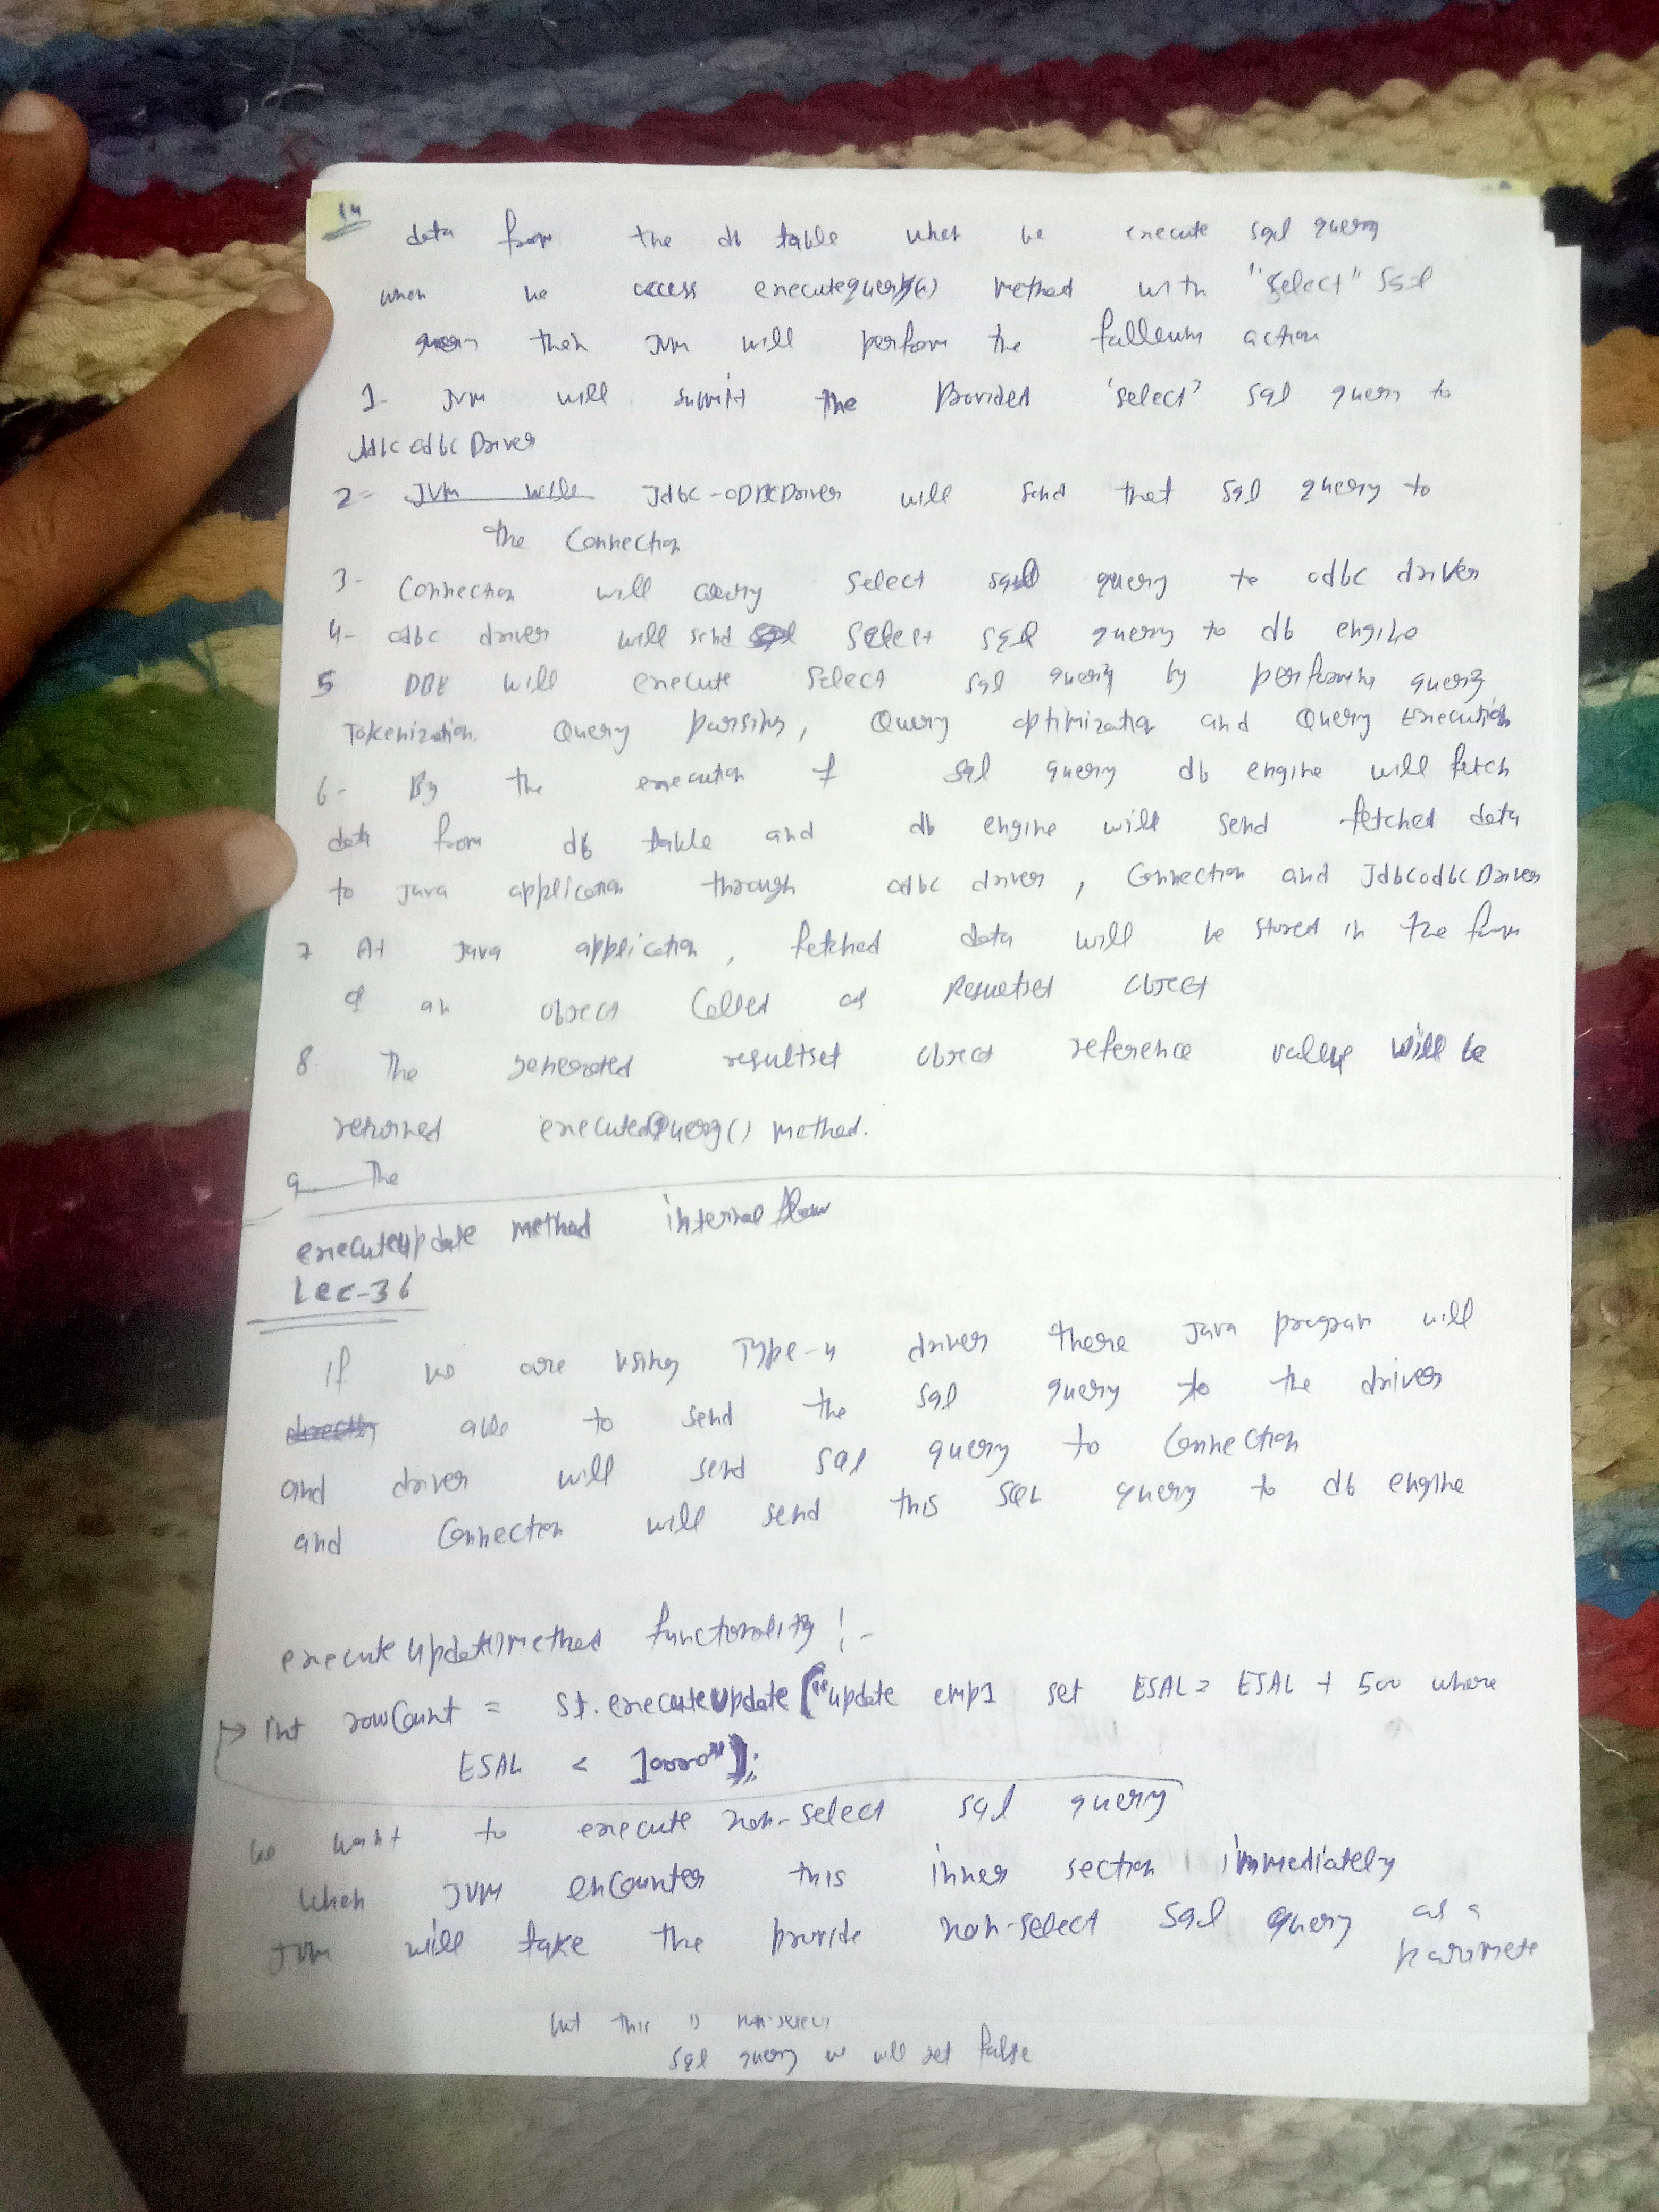 14
data from the db table when we execute sql query
when we access executequery(-) method with "select" sql
query then JVM will perform the action
1- JVM will submit the Provided 'select' sql query to
JdbcOdbcDriver
2- JVM will Jdbc-ODBCDriver will send that sql query to
the Connection
3- Connection will carry select sql query to odbc driver
4- odbc driver will send select sql query to db engine
5 DBE will execute select sql query by performing query
Tokenization. Query parsing, Query optimization and Query Execution
6- By the execution of sql query db engine will fetch
data from db table and db engine will send fetched data
to java application through odbc driver, Connection and JdbcodbcDriver
7 At java application, fetched data will be stored in the form
of an object Called as Resultset object
8 The generated resultset object reference value will be
returned executedQuery() method.
9 The
executeupdate method internal flow
Lec-36
If we are using Type-4 driver there Java program will
directly able to send the sql query to the driver
and driver will send sql query to Connection
and Connection will send this SQL query to db engine
execute update() method functionality :-
int rowCount = st.executeUpdate("update emp1 set ESAL = ESAL + 500 where
ESAL < 10000");
we want to execute non-select sql query
when JVM encounter this inner section immediately
JVM will take the provide non-select sql query as a
paramete
but this is non-select
sql query we will get false